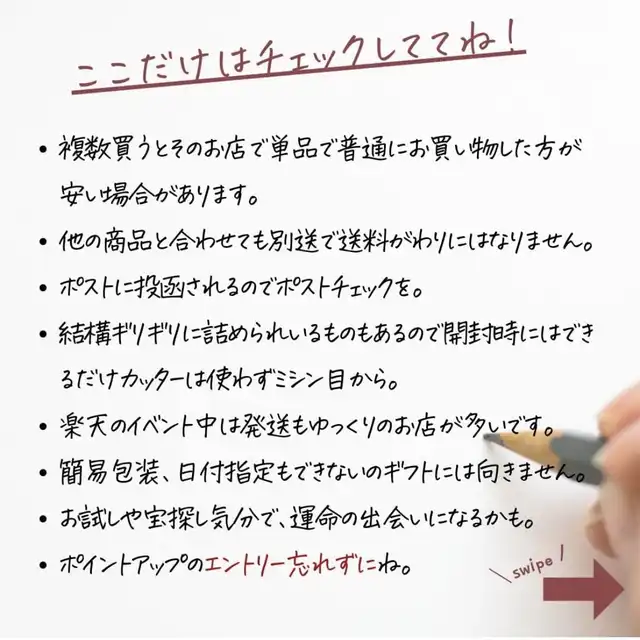 ここだけはチェックしててね!
• 複数買うとそのお店で単品で普通にお買い物した方が
安い場合があります。
• 他の商品と合わせても別送で送料がわりにはなりません。
• ポストに投函されるのでポストチェックを。
• 結構ギリギリに詰められいるものもあるので開封時にはでき
るだけカッターは使わずミシン目から。
• 楽天のイベント中は発送もゆっくりのお店が多いです。
• 簡易包装、日付指定もできないのギフトには向きません。
• お試しや宝探し気分で、運命の出会いになるかも。
• ポイントアップのエントリー忘れずにね。
\ swipe /